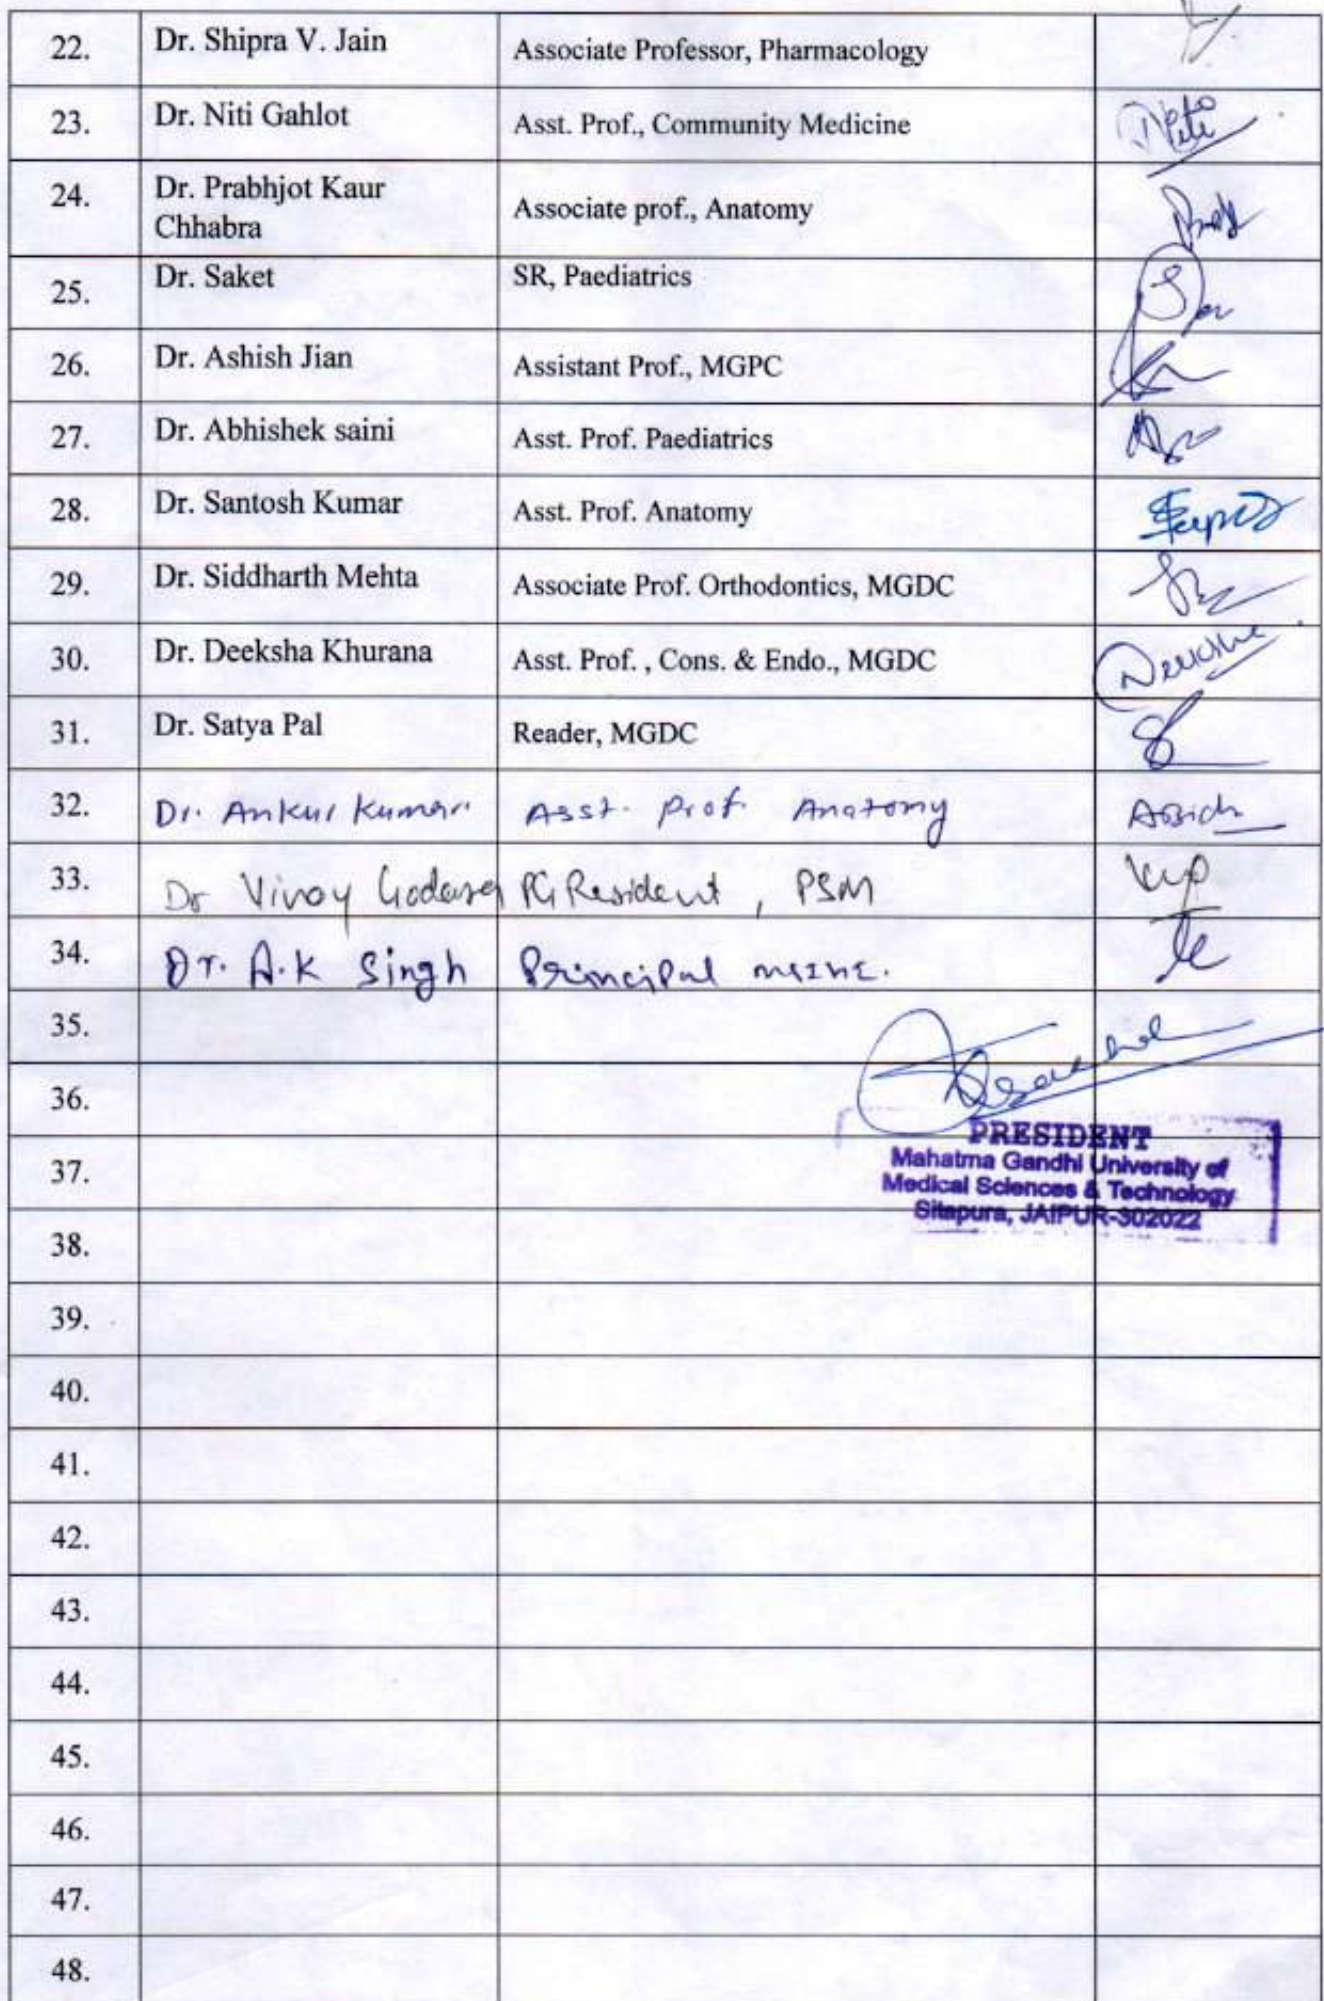 22. Dr. Shipra V. Jain Associate Professor, Pharmacology
23. Dr. Niti Gahlot Asst. Prof., Community Medicine
24. Dr. Prabhjot Kaur Associate prof., Anatomy
Chhabra
25. Dr. Saket SR, Paediatrics
26. Dr. Ashish Jian Assistant Prof., MGPC
27. Dr. Abhishek saini Asst. Prof. Paediatrics
28. Dr. Santosh Kumar Asst. Prof. Anatomy
29. Dr. Siddharth Mehta Associate Prof. Orthodontics, MGDC
30. Dr. Deeksha Khurana Asst. Prof. , Cons. & Endo., MGDC
31. Dr. Satya Pal Reader, MGDC
32. Dr. Ankur Kumar Asst. Prof. Anatomy
33. Dr Vinay Godara PG Resident, PSM
34. Dr. A.K Singh Principal
35.
36.
PRESIDENT
Mahatma Gandhi University of
37.
Medical Sciences & Technology
Sitapura, JAIPUR-302022
38.
39.
40.
41.
42.
43.
44.
45.
46.
47.
48.